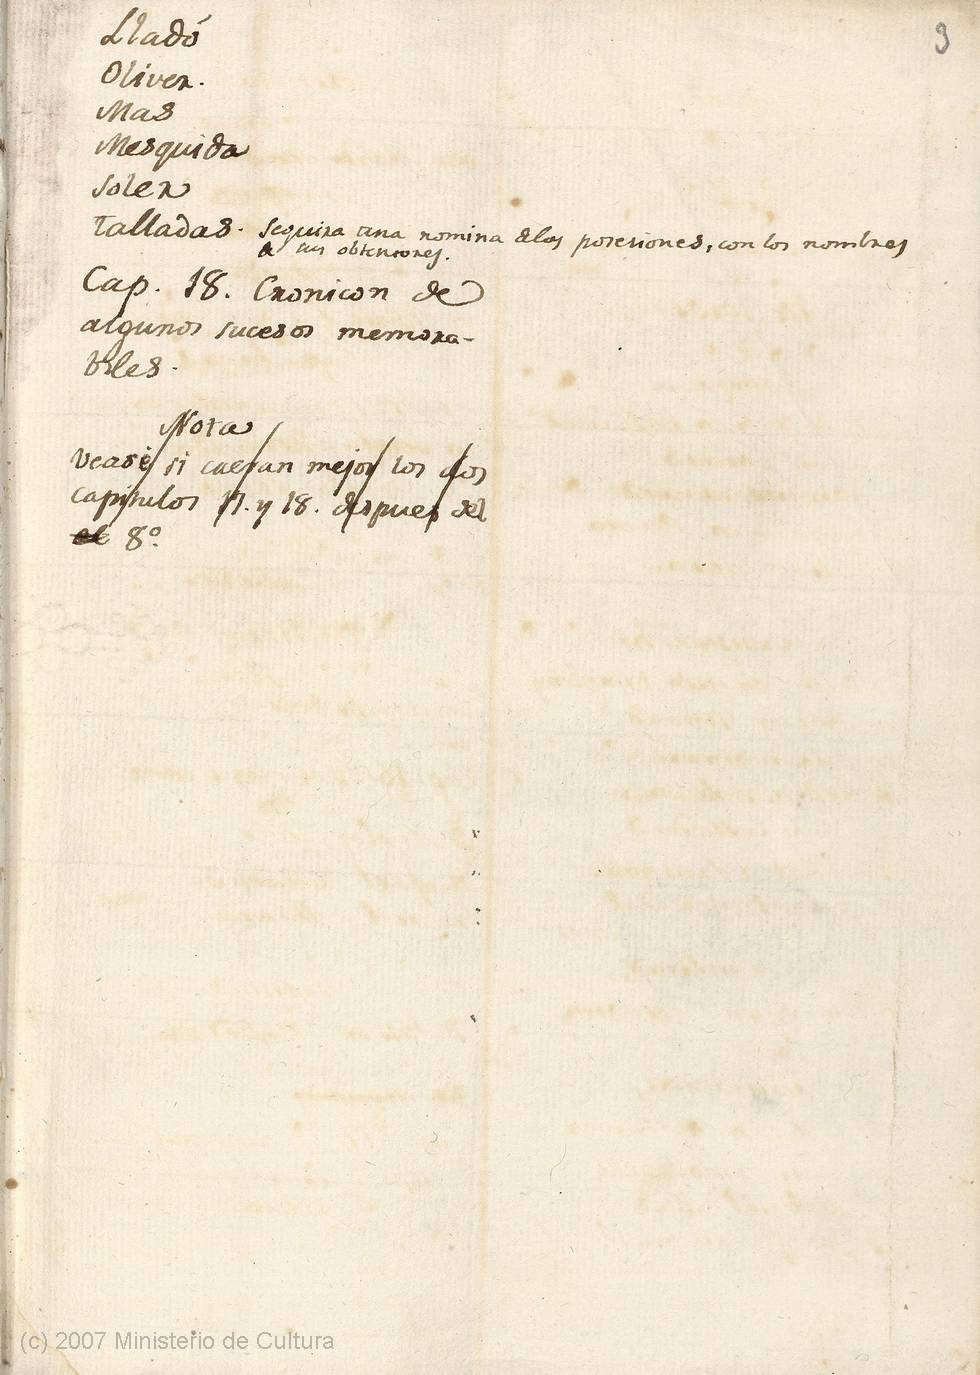 9
Lladó
Oliver.
Mas
Mesquida
Soler
Talladas. Seguira una nomina de las posesiones, con los nombres
de sus obtentores.
Cap. 18. Cronicon de
algunos sucesos memora-
bles.
Nota
Vease si caeran mejor los dos
capitulos 17. y 18. despues del
el 8º
(c) 2007 Ministerio de Cultura